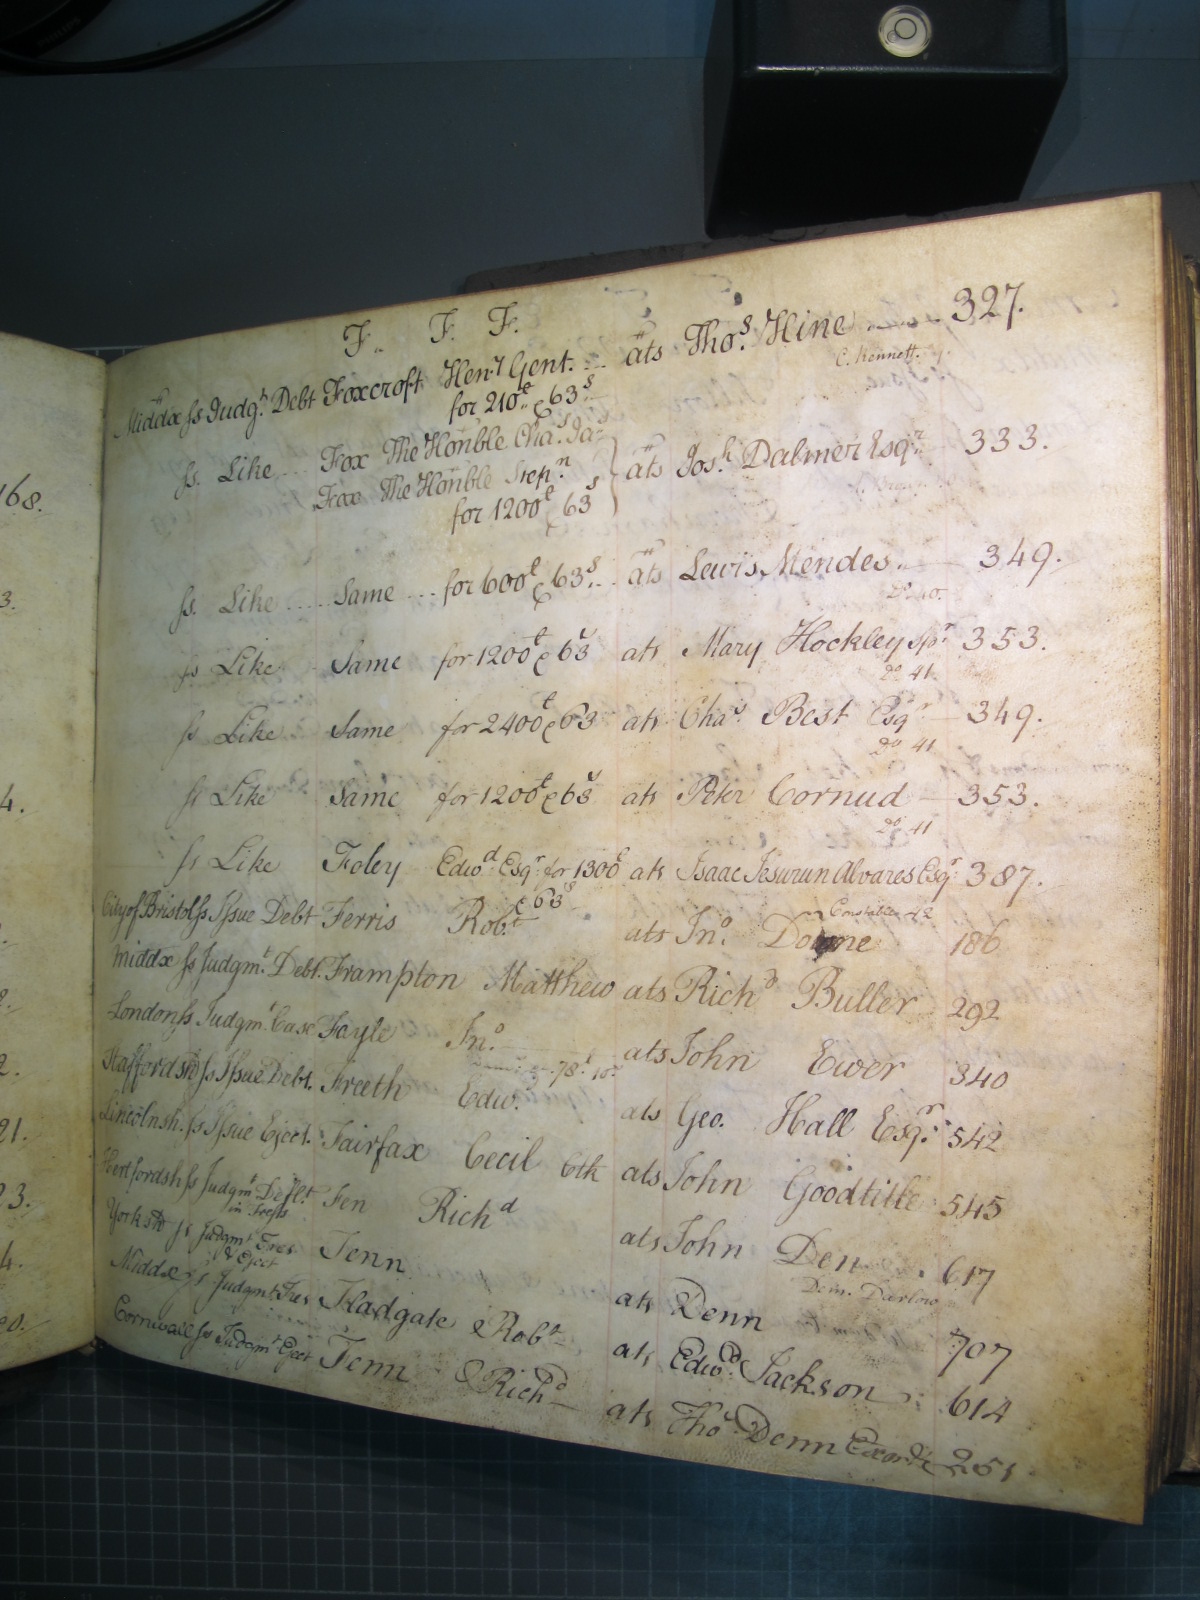 168.
3.
4.
2.
21.
23.
4.
F. F. F.
Middx ss Judgt. Debt Foxcroft Henry Gent. ats Thos. Hine 327.
for 210£ & 63s C. Kennett.
ss. Like Fox The Honble Chas. Jas
Fox The Honble Stepn. ats Josh. Dalmer Esqr. 333.
for 1200£ & 63s
ss. Like Same for 600£ & 63s. ats Lewis Mendes. 349.
Do 40.
ss Like Same for 1200£ & 63s ats Mary Hockley Spr 353.
Do 41.
ss Like Same for 2400£ & 63 ats Chas. Best Esqr 349.
Do 41
ss Like Same for 1200£ & 63s ats Peter Cornud 353.
Do 41
ss Like Foley Edwd. Esqr. for 1300£ ats Isaac Jesurun Alvares Esqr 387.
& 63s
City of Bristol ss Issue Debt Ferris Robt. ats Jno. Downe 186
Middx ss Judgmt. Debt. Frampton Matthew ats Richd Buller 292
London ss Judgmt Case Fayle Jno. ats John Ewer 340
78£ 10s
Staffordsh ss Issue Debt. Freeth Edw. ats Geo. Hall Esqr. 542
Lincolnsh. ss Issue Eject. Fairfax Cecil Clk ats John Goodtitle 545
Hertfordsh ss Judgmt Deflt Fen Richd ats John Den 617
in Tresps Dem. Darlow
Yorksh ss Judgmt Tres Fenn ats Denn 707
& Eject
Middx ss Judgmt Tres Fladgate & Robt ats Edwd. Jackson 614
Cornwall ss Judgmt Eject Fenn & Richd ats Thos Denn Exor &c 251